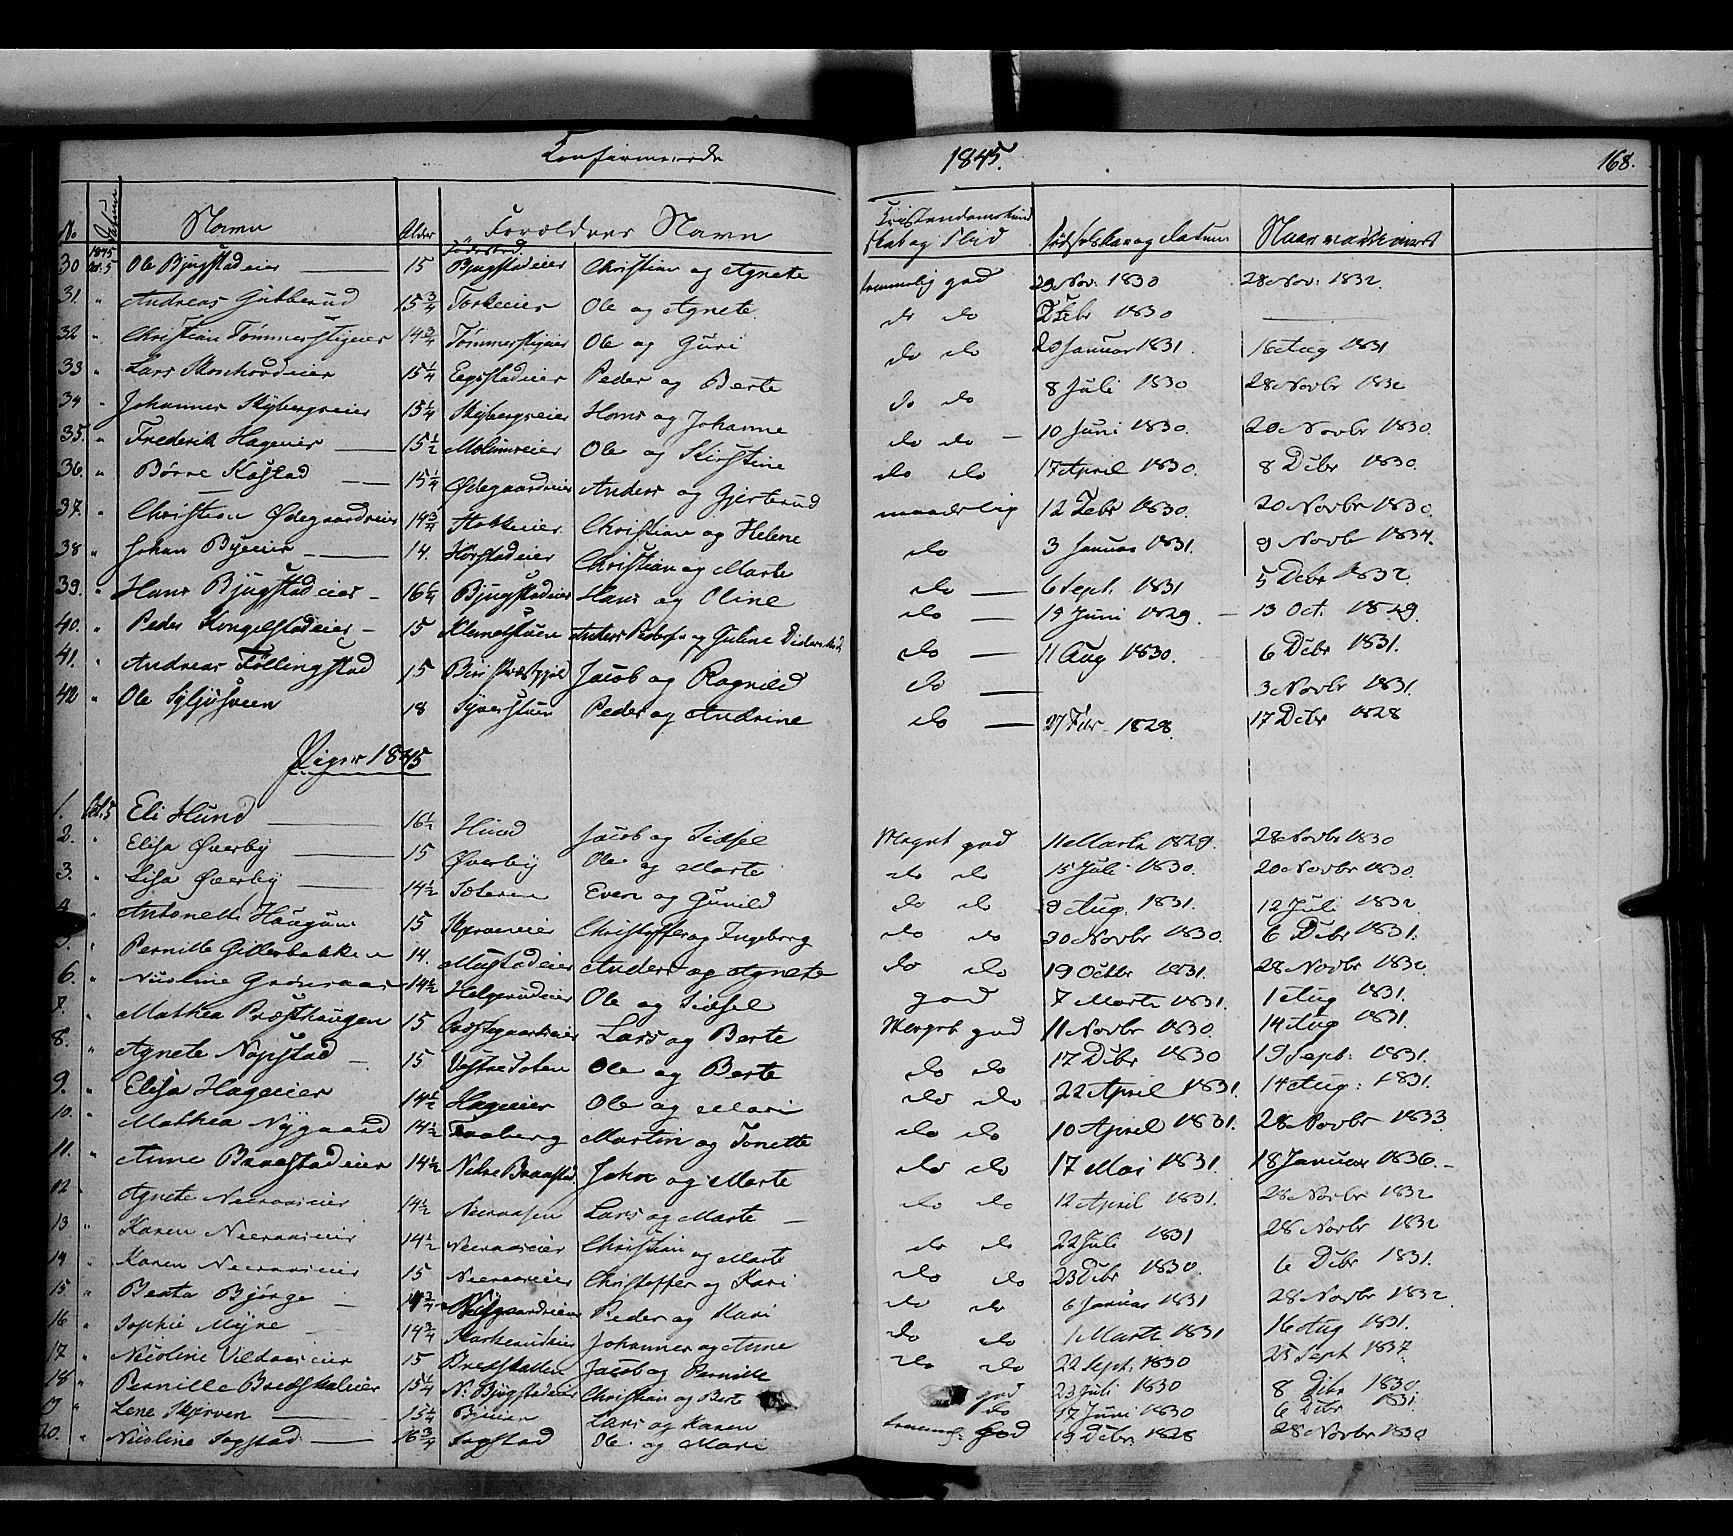 Konfirmerede 1845. 168.
No Datum Navn Alder Fødested Forældres Navn Kristendomskundskab og Flid Fødselsdag og Datum Naar vaccineret
30 1845 Oct. 5 Ole Bjugstadeier 15 Bjugstadeier Christian og Agnete temmelig god 29 Nov: 1830 28 Nov: 1832.
31. " Andreas Gubberud 15 3/4 Ole og Agnete do do Febr 1830
32 " Christian Tømmerstigeier 14 3/4 Tømmerstigeier Ole og Guri do do 20 Januar 1831. 18 Aug 1831
33 " Lars 15 1/4 Eegstadeier Peder og Berte do do 8 Juli 1830 28 Novbr 1832
34 " Johannes Skybergseier 15 1/4 Skybergseier Hans og Johanne do do 10 Juni 1830. 20 Novbr 1830.
35. " Frederik Hageeier 15 1/2 Ole og Kirstine do do 17 April 1830. 8 Debr 1830.
36. " Børre Kastad 15 1/4 Ødegaardseier Anders og Gjertrud maadelig 12 Febr 1830. 20 Novbr 1830.
37. " Christian Ødegaardseier 14 3/4 Stokkeeier Christian og Helene do 3 Januar 1831. 9 Novbr 1834.
38 " Johan Byeeier 14. Christian og Marte do 6 Sept. 1831 5 Debr 1832.
39. " Hans Bjugstadeier 16 1/4 Bjugstadeier Hans og Oline do 19 Juni 1829. 13 Oct. 1829.
40. " Peder Kongelstadeier 15 Klundstuen Anders og Guline do 11 Aug 1830. 6 Debr 1831.
41. " Andreas Føllingstad 15 Biri Præstegjeld Jacob og Ragnild do 3 Novbr 1831.
42 " Ole Syljusveen 18 Syverstuen Peder og Andrine do 1828. 17 Debr 1828
Piger 1845
1. Oct. 5 Eli Hund 16 1/2 Hund Jacob og Sidsel Meget god 11 Marts 1829. 28 Novbr 1830
2. " Elisa Øverby 15 Øverby Ole og Marte do do 15 Juli 1830. 20 Novbr 1830.
3. " Lisa Øverby 14 1/2 Even og Gunild do do 9 Aug. 1831. 12 Juli 1832.
4. " Antonette Haugum 15 Christoffer og Ingeborg do do 30 Novbr 1830. 6 Debr 1831.
5. " Pernille Gillerbakken 14. Mustadeier Anders og Agnete do do 19 Octbr 1831. 28 Novbr 1832.
6. " Nicoline Grønaas 14 1/2 Helgerudeier Ole og Sidsel god 7 Marts 1831. 1 Aug 1831.
7. " Mathea Præsthaugen 15 Præstegaardseier Lars og Berte Meget god 11 Novbr 1830. 14 Aug 1831.
8. " Agnete Nøpstad 15 Vestre Toten Ole og Berte do do 17 Debr 1830 19 Sept: 1831.
9. " Elisa Hageeier 14 1/2 Hageeier Ole og Mari do do 22 April 1831. 14 Aug: 1831.
10. " Mathea Nygaard 14 1/2 Faaberg Martin og Tonette do do 10 April 1831. 28 Novbr 1833
11. " Anne Braastadeier 14 1/2 Nedre Braastad John og Marte do do 17 Mai 1831. 18 Januar 1836.
12 " Agnete Neeraaseier 14 1/2 Neeraasen Lars og Marte do do 12 April 1831. 28 Novbr 1832
13 " Karen Neeraaseier 14 1/2 Neeraaseier Christian og Marte do do 22 Juli 1831 28 Novbr 1832
14 " Karen Neeraaseier 15 Neeraaseier Christoffer og Kari do do 23 Debr 1830. 6 Debr 1831.
15 " Berta Bjørge 14 3/4 Nygaardseier Peder og Kari do do 6 Januar 1831 28 Novbr 1832.
16 " Sophie Myre 14 3/4 Johannes og Anne do do 1 Marts 1831 16 Aug 1831.
17 " Nicoline Vildaaseier 15 Bredskallen Jacob og Pernille do do 22 Sept: 1830 25 Sept 1837.
18 " Pernille Bredskaleier 15 1/4 N. Bjugstadeier Christian og Berte god 23 Juli 1830 8 Debr 1830
19 " Lene Skjerven 15 1/4 Byeeier Lars og Karen do 17 Juni 1830 6 Debr 1831
20. " Nicoline Sogstad 16 3/4 Sogstad Ole og Mari temmel. God 19 Debr. 1828 28 Novbr 1830.